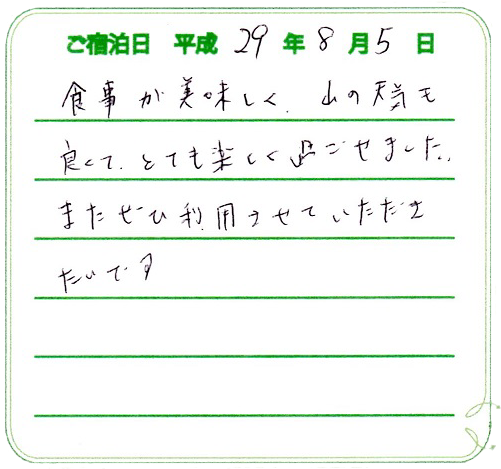 ご宿泊日 平成 29 年 8 月 5 日
食事が美味しく、山の天気も
良くて、とても楽しく過ごせました。
またぜひ利用させていただき
たいです